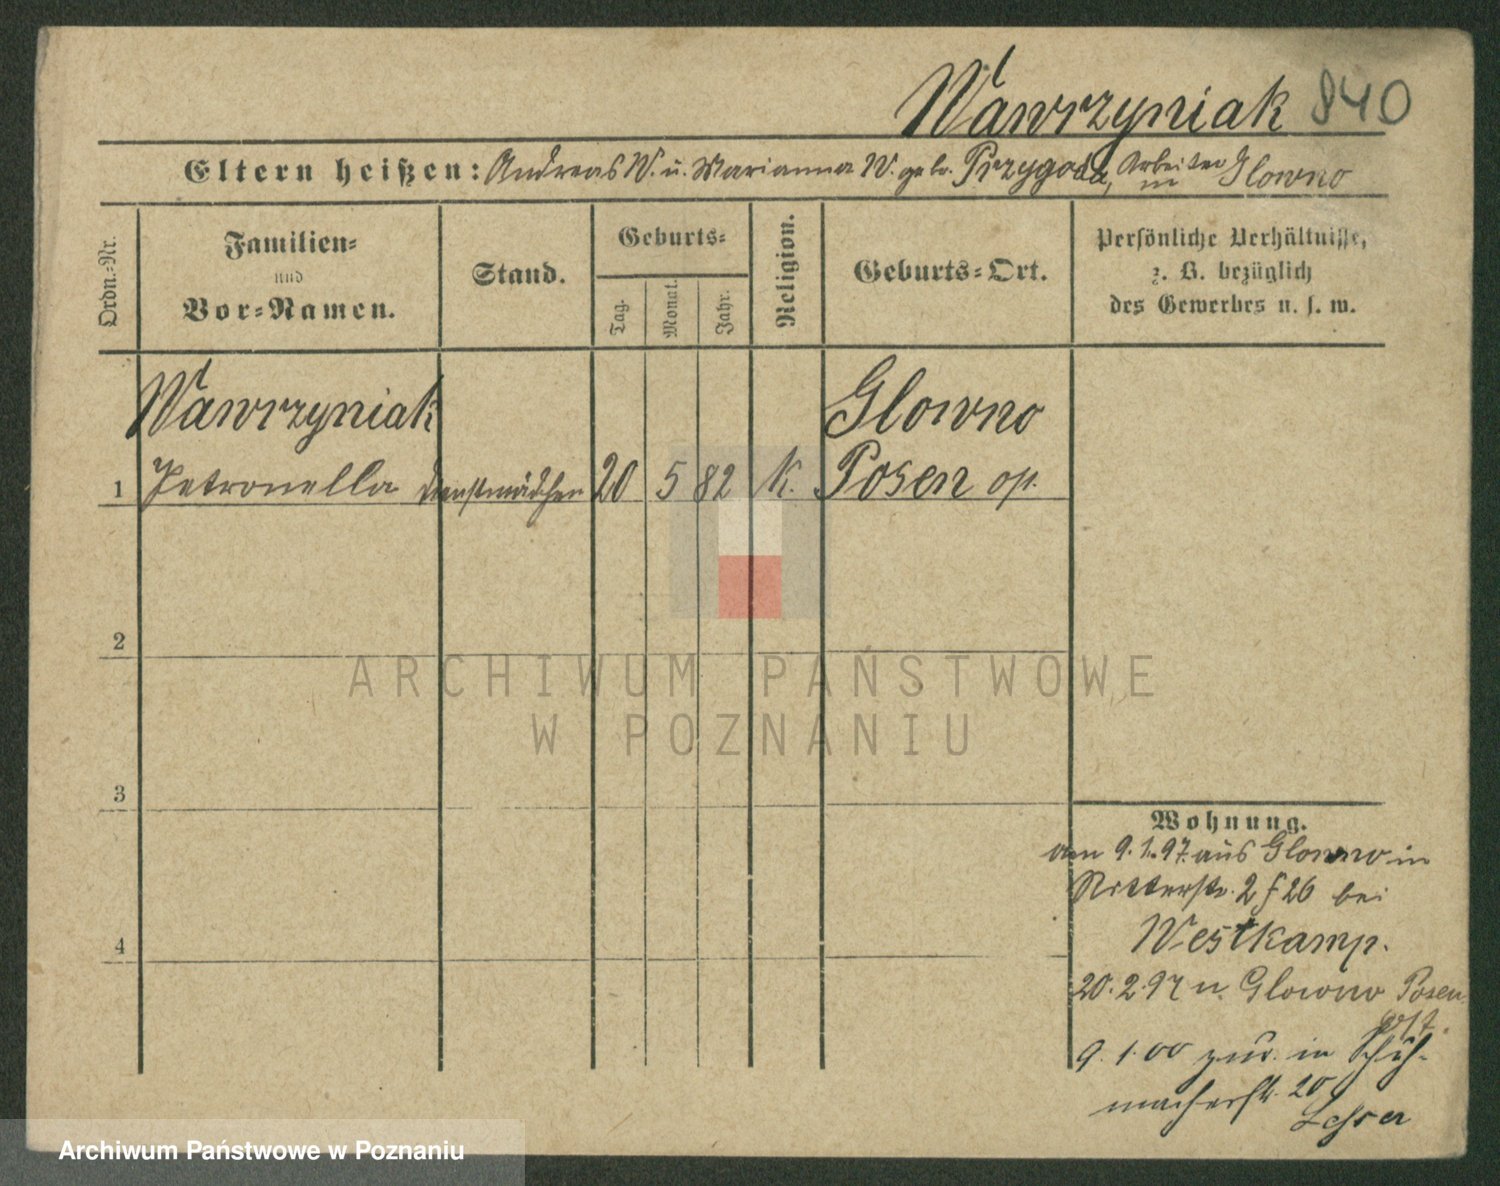 Wawrzyniak 840
Eltern heißen: Andreas W. u. Marianna W. geb. Przygoda, Arbeiter in Glowno
Ordn.-Nr.
Familien-
und
Vor-Namen.
Stand.
Geburts-
Tag.
Monat.
Jahr.
Religion.
Geburts-Ort.
Persönliche Verhältnisse,
z. B. bezüglich
des Gewerbes u. s. w.
Wawrzyniak Glowno
1 Petronella Dienstmädchen 20 5 82 K. Posen op.
2
3
4
Wohnung.
am 9.1.97. aus Glowno in
Ritterstr. 2 f 26 bei
Westkamp.
20.2.97 n. Glowno Posen
ost.
9.1.00 zur. in Schuh-
macherstr. 20
ARCHIWUM PAŃSTWOWE
W POZNANIU
Archiwum Państwowe w Poznaniu